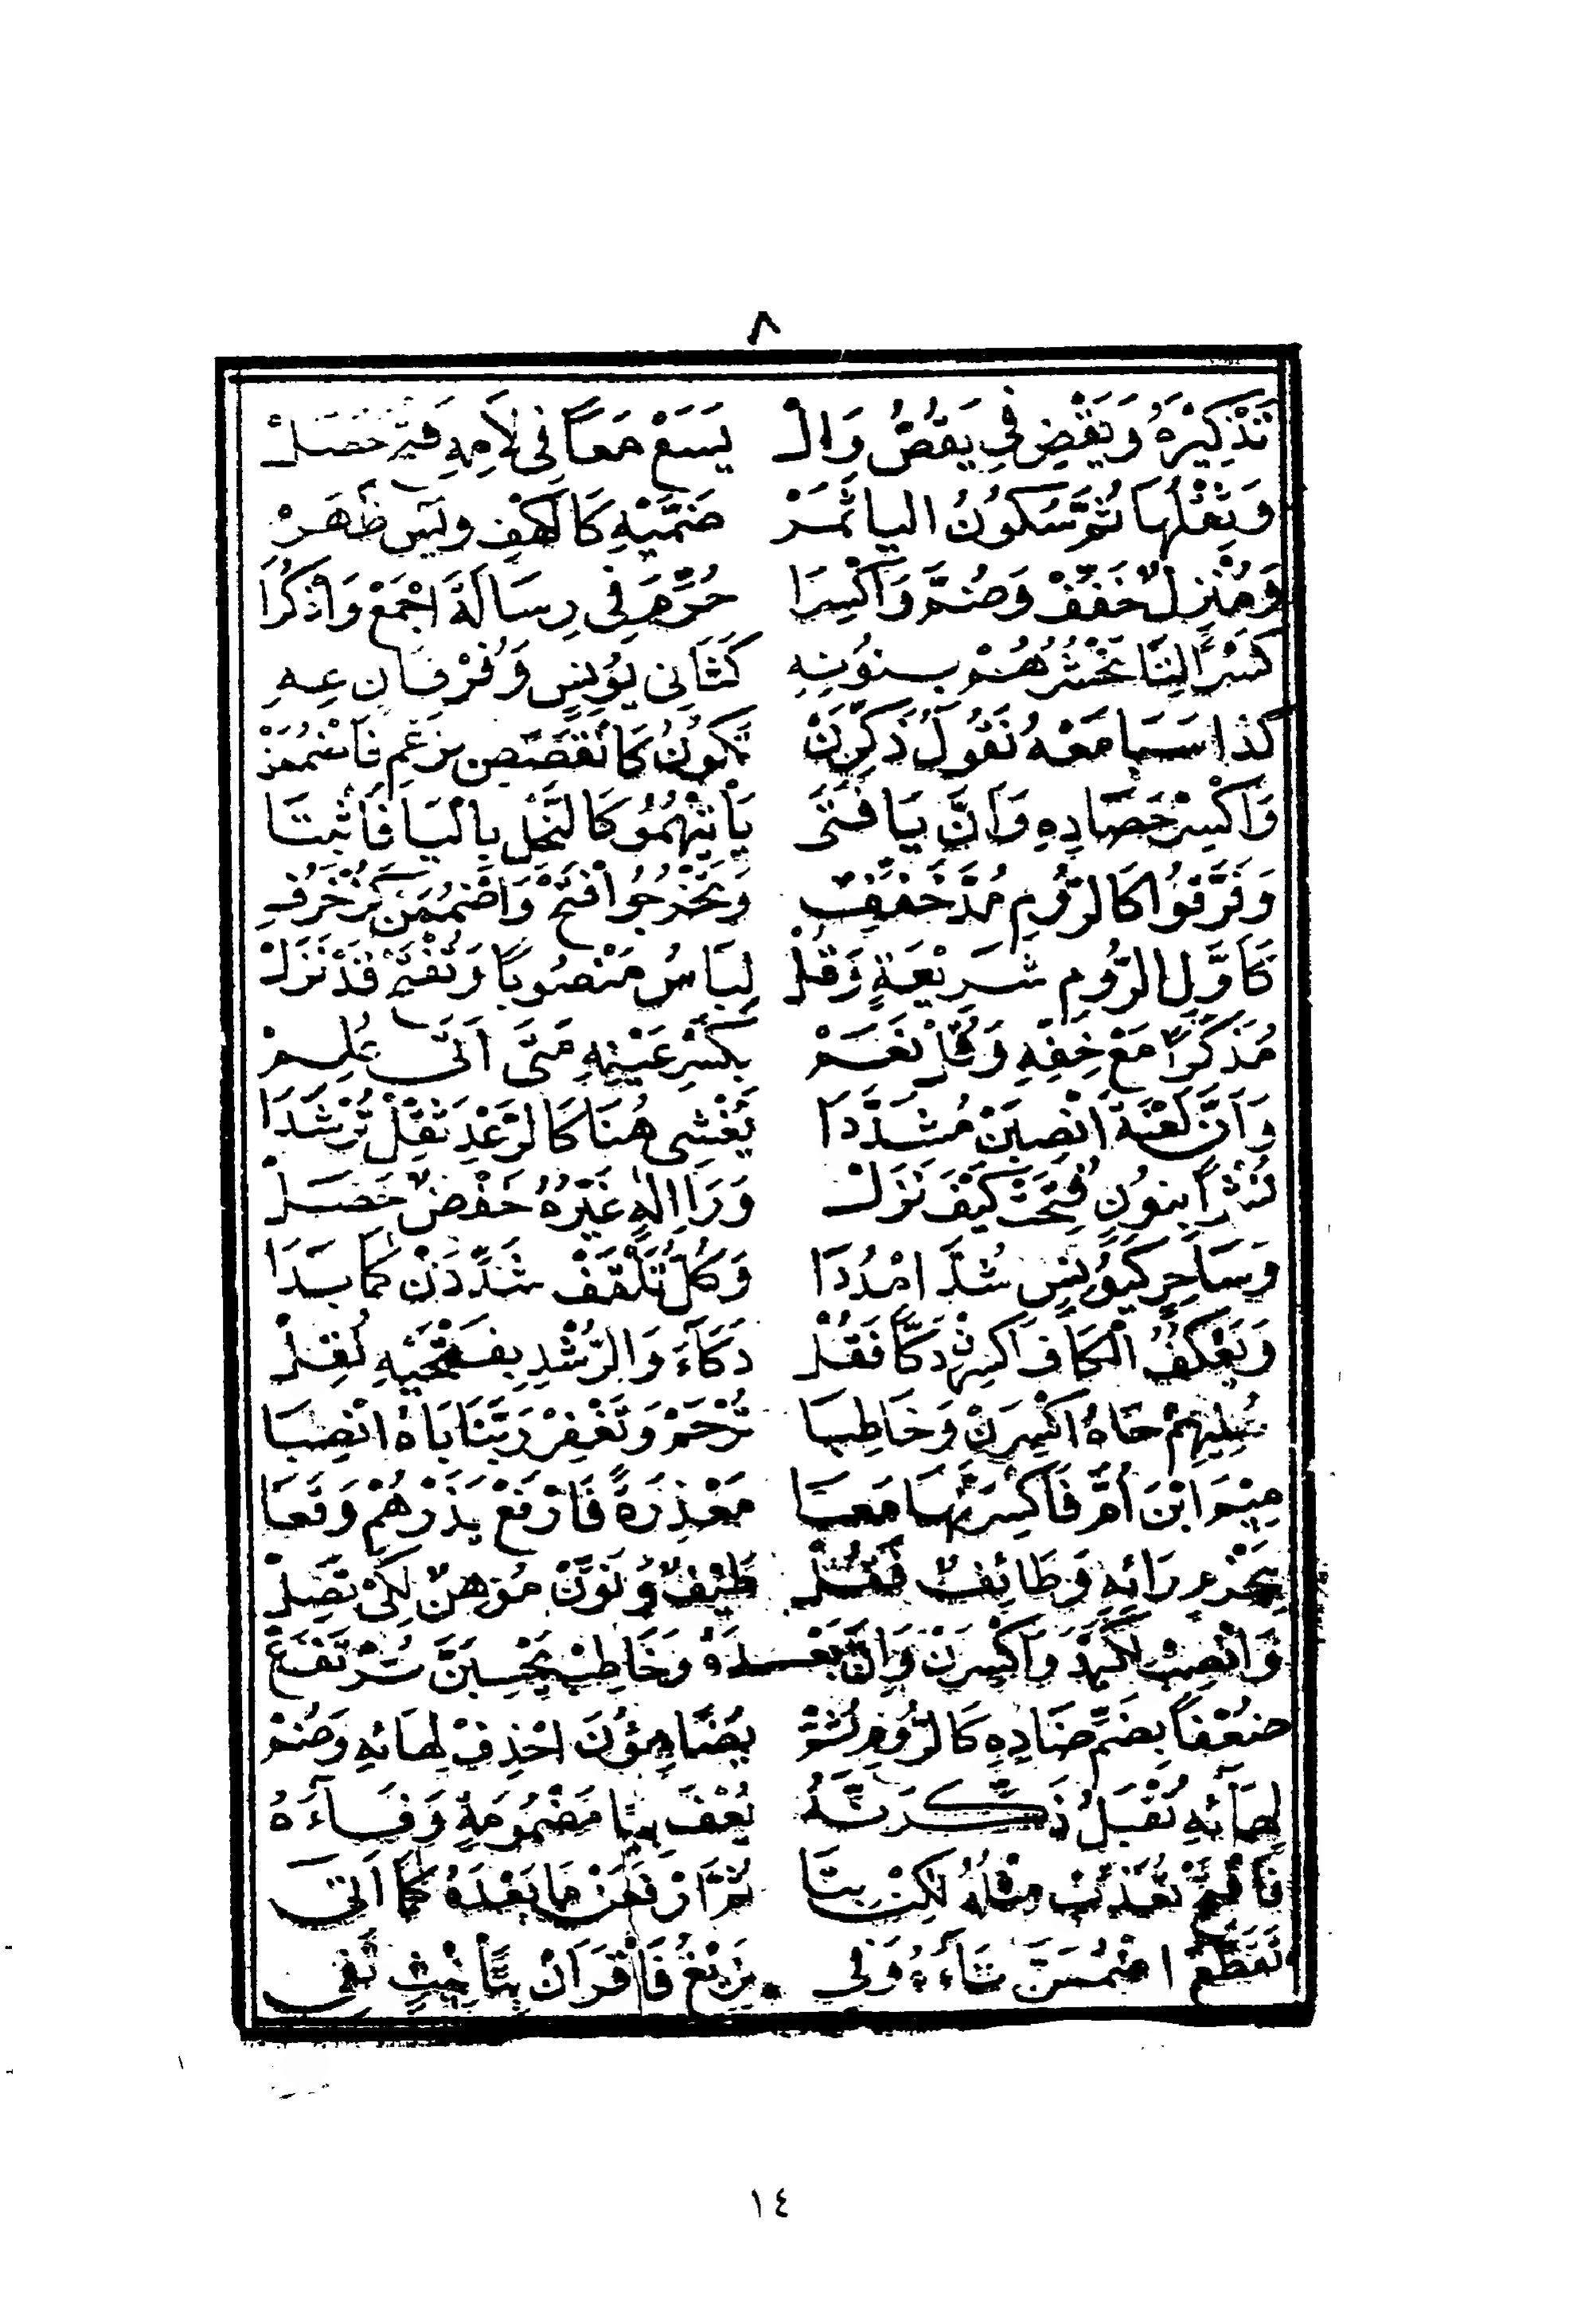 ٨
تَذْكِيْرُهُ وَيَقْضِ فِي يَقُصُّ وَالْ يَسَعْ مَعاً فِي لَامِهِ فَتْحٌ حَصَلْ
وَثِقْلُهَا ثُمَّ سُكُونُ اليا ثَمَرْ ضَمَّيْهِ كَالكَهْفِ وَيٰسٓ ظَهَرْ
وَمُنْزِلٌ خَفِّفْ وَضُمَّ وَاكْسِرَا حُرِّمَ فِي رِسَالَةَ اجْمَعْ وَاذْكُرَا
كَسْراً لِتَا نَحْشُرُهُمُ بِنُونِهِ كَثَانِي يُونِسٍ وَفُرْقَانٍ عِهِ
كَذا سَبَا مَعْهُ نَقُولُ ذَكِّرَنْ تَكُونُ كَالقَصَصِ بِزَعْمِ فَاضْمُمَنْ
وَاكْسِرْ حَصَادِهِ وَأَنَّ يَا فَتَى يَأْتِيْهُمُو كَالنَّحْلِ بِاليَا فَاثْبِتَا
وَفَرَّقُوا كَالرُّومِ مُدَّ خَفِّفِ وَتُخْرَجُوا افْتَحْ وَاضْمُمَنْ كَزُخْرُفِ
كَأَوَّلِ الرُّومِ شَرِيْعَةٍ وَقُلْ لِبَاسُ مَنْصُوباً وَتُفْتَحْ قَدْ نَزَلْ
مُذَكَّراً مَعْ خِفِّهِ وَقُلْ نَعَمْ بِكَسْرِ عَيْنِهِ مَتَى أَتَى عُلِمْ
وَأَنَّ لَعْنَةَ انْصِبَنْ مُشَدَّدَا يُغْشِي هُنَا كَالرَّعْدِ ثَقِّلْ تُرْشَدَا
نَشْراً بِنُونٍ فُتِحَتْ كَيْفَ نَزَلْ وَرَا إِلٰهٍ غَيْرُهُ خَفْضٌ حَصَلْ
وَسَاحِرٍ كَيُونِسٍ شُدَّ امْدُدَا وَكُلُّ تَلْقَفْ شَدِّدَنْ كَمَا بَدَا
وَيَعْكُفُ الكَافَ اكْسِرْ دَكّاً فَقُلْ دَكَّآءَ وَالرُّشْدِ بِفَتْحَيْهِ نُقِلْ
حُلِيِّهِمْ حَاهُ اكْسِرَنْ وَخَاطِبَا تُرْحَمْ وَتَغْفِرْ رَبَّنَا بَاهُ انْصِبَا
مِيْمَ ابْنَ أُمَّ فَاكْسِرَنْهَا مَعَا مَعْذِرَةً فَارْفَعْ يَذَرْهُمْ وَقَعَا
بِجَزْمِ رَائِهِ وَطَائِفٌ فَقُلْ طَيْفٌ وَنَوِّنْ مُوْهِنٌ لِكَيْ تَصِلْ
وَانْصِبْ لِكَيْدَ وَاكْسِرَنْ وَأَنَّ بَعْدَهْ وَخَاطِبْ يَحْسِبَنَّ تُرْتَفَعْ
ضَعْفاً بِضَمِّ ضَادِهِ كَالرُّومِ ثُمْ يُضَاهِئُونَ احْذِفْ لِهَائِهِ وَضُمْ
لِهَائِهِ تُقْبَلُ ذَكِّرَنَّهُ يُعْفَ بِيَا مَضْمُومَةٍ وَفَاءَهُ
فَافْتَحْ تُعَذَّبْ مِثْلُهُ لَكِنْ بِتَا ثُمَّ ارْفَعَنْ مَا بَعْدَهُ كَمَا أَتَى
تَقَطَّعَ اضْمُمَنَّ تَاءَهُ وَفِي يَزِيْغُ فَاقْرَأَنْ بِتَأْنِيْثٍ تَفِي
١٤